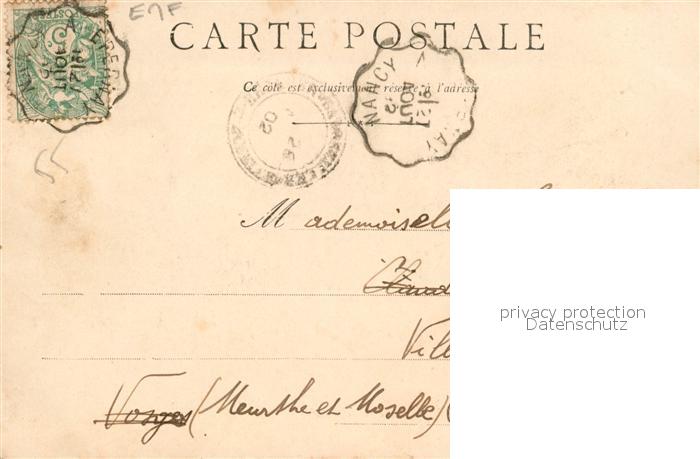 E7F
CARTE POSTALE
Ce côté est exclusivement réservé à l'adresse
NANCY A
21
AOUT
02
26
02
55
Mademoisel
Vill
Vosges (Meurthe et Moselle) (
privacy protection
Datenschutz